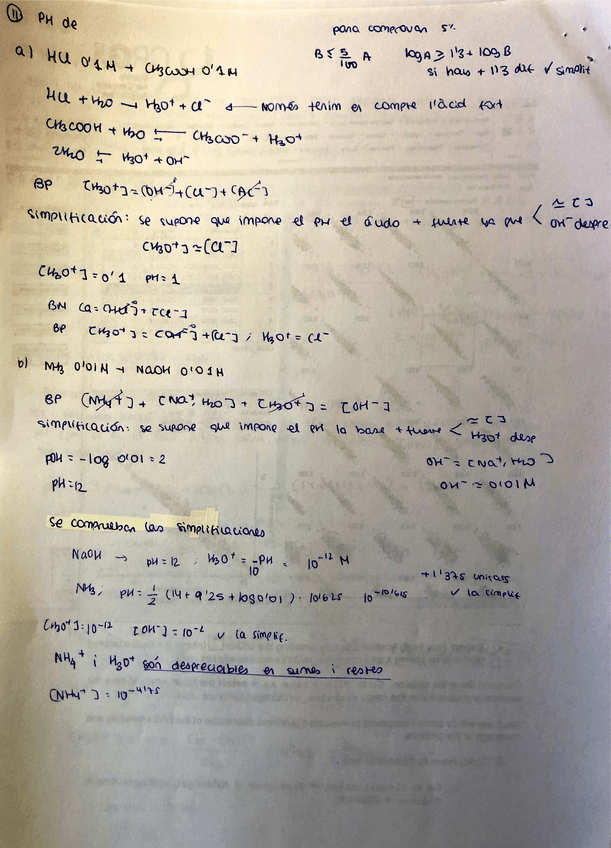 11 PH de
para comprovar 5%
a) HCl 0'1M + CH3COOH 0'1M
B ≤ 5/100 A logA ≥ 1'3 + logB
si hay + 1'3 de ✓ simplif
HCl + H2O → H3O+ + Cl- ← Només tenim en compte l'àcid fort
CH3COOH + H2O ⇆ CH3COO- + H3O+
2H2O ⇆ H3O+ + OH-
BP [H3O+] = [OH-] + [Cl-] + [Ac-]
simplificación: se supone que impone el PH el ácido + fuerte ya que < ≃ [ ]
OH- despre
[H3O+] ≃ [Cl-]
[H3O+] = 0'1 pH = 1
BM Ca = [HCl] + [Cl-]
BP [H3O+] = [OH-] + [Cl-] ; H3O+ = Cl-
b) NH3 0'01M + NaOH 0'01M
BP [NH4+] + [Na+, H2O] + [H3O+] = [OH-]
simplificación: se supone que impone el PH la base + fuerte < ≃ [ ]
H3O+ desp
pOH = -log 0'01 = 2
OH- = [Na+, H2O]
pH = 12
OH- ≃ 0'01M
Se comprueban las simplificaciones
NaOH → pH = 12 ; H3O+ = 10-PH = 10-12 M
+1'375 unitats
NH3; pH = 1/2 (14 + 9'25 + log0'01) = 10'625 10-10'625 ✓ la simplif
[H3O+]: 10-12 [OH-] = 10-2 ✓ la simplif.
NH4+ i H3O+ són despreciables en sumes i restes
[NH4+] = 10-4'75